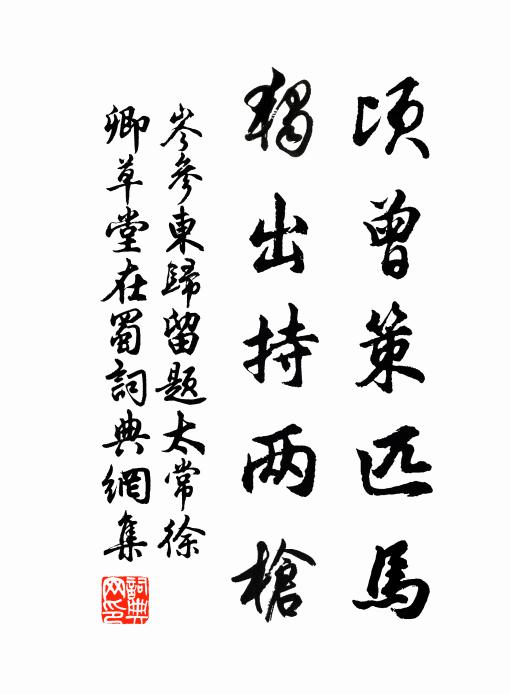 頃曾策匹馬
獨出持两槍
岑參東歸留題太常徐
卿草堂在蜀詞典網集
詞典网印